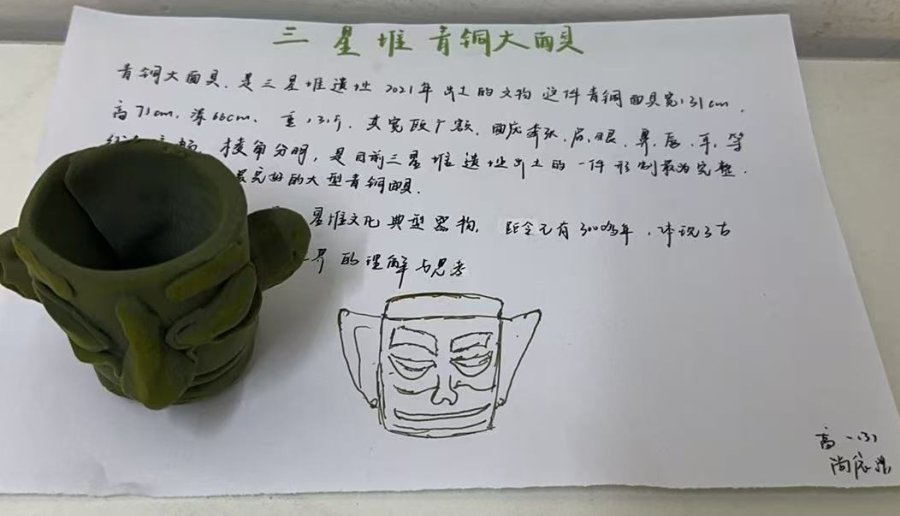 三星堆青铜大面具
青铜大面具，是三星堆遗址2021年出土的文物 这件青铜面具宽131cm，
高71cm，深66cm，重131斤，其宽颐广额，面庞奔张，眉、眼、鼻、唇、耳，等
棱角分明，是目前三星堆遗址出土的一件形制最为完整，
最完好的大型青铜面具．
星堆文化典型器物，距今已有3000多年，体现了古
界的理解与思考
高一（3）